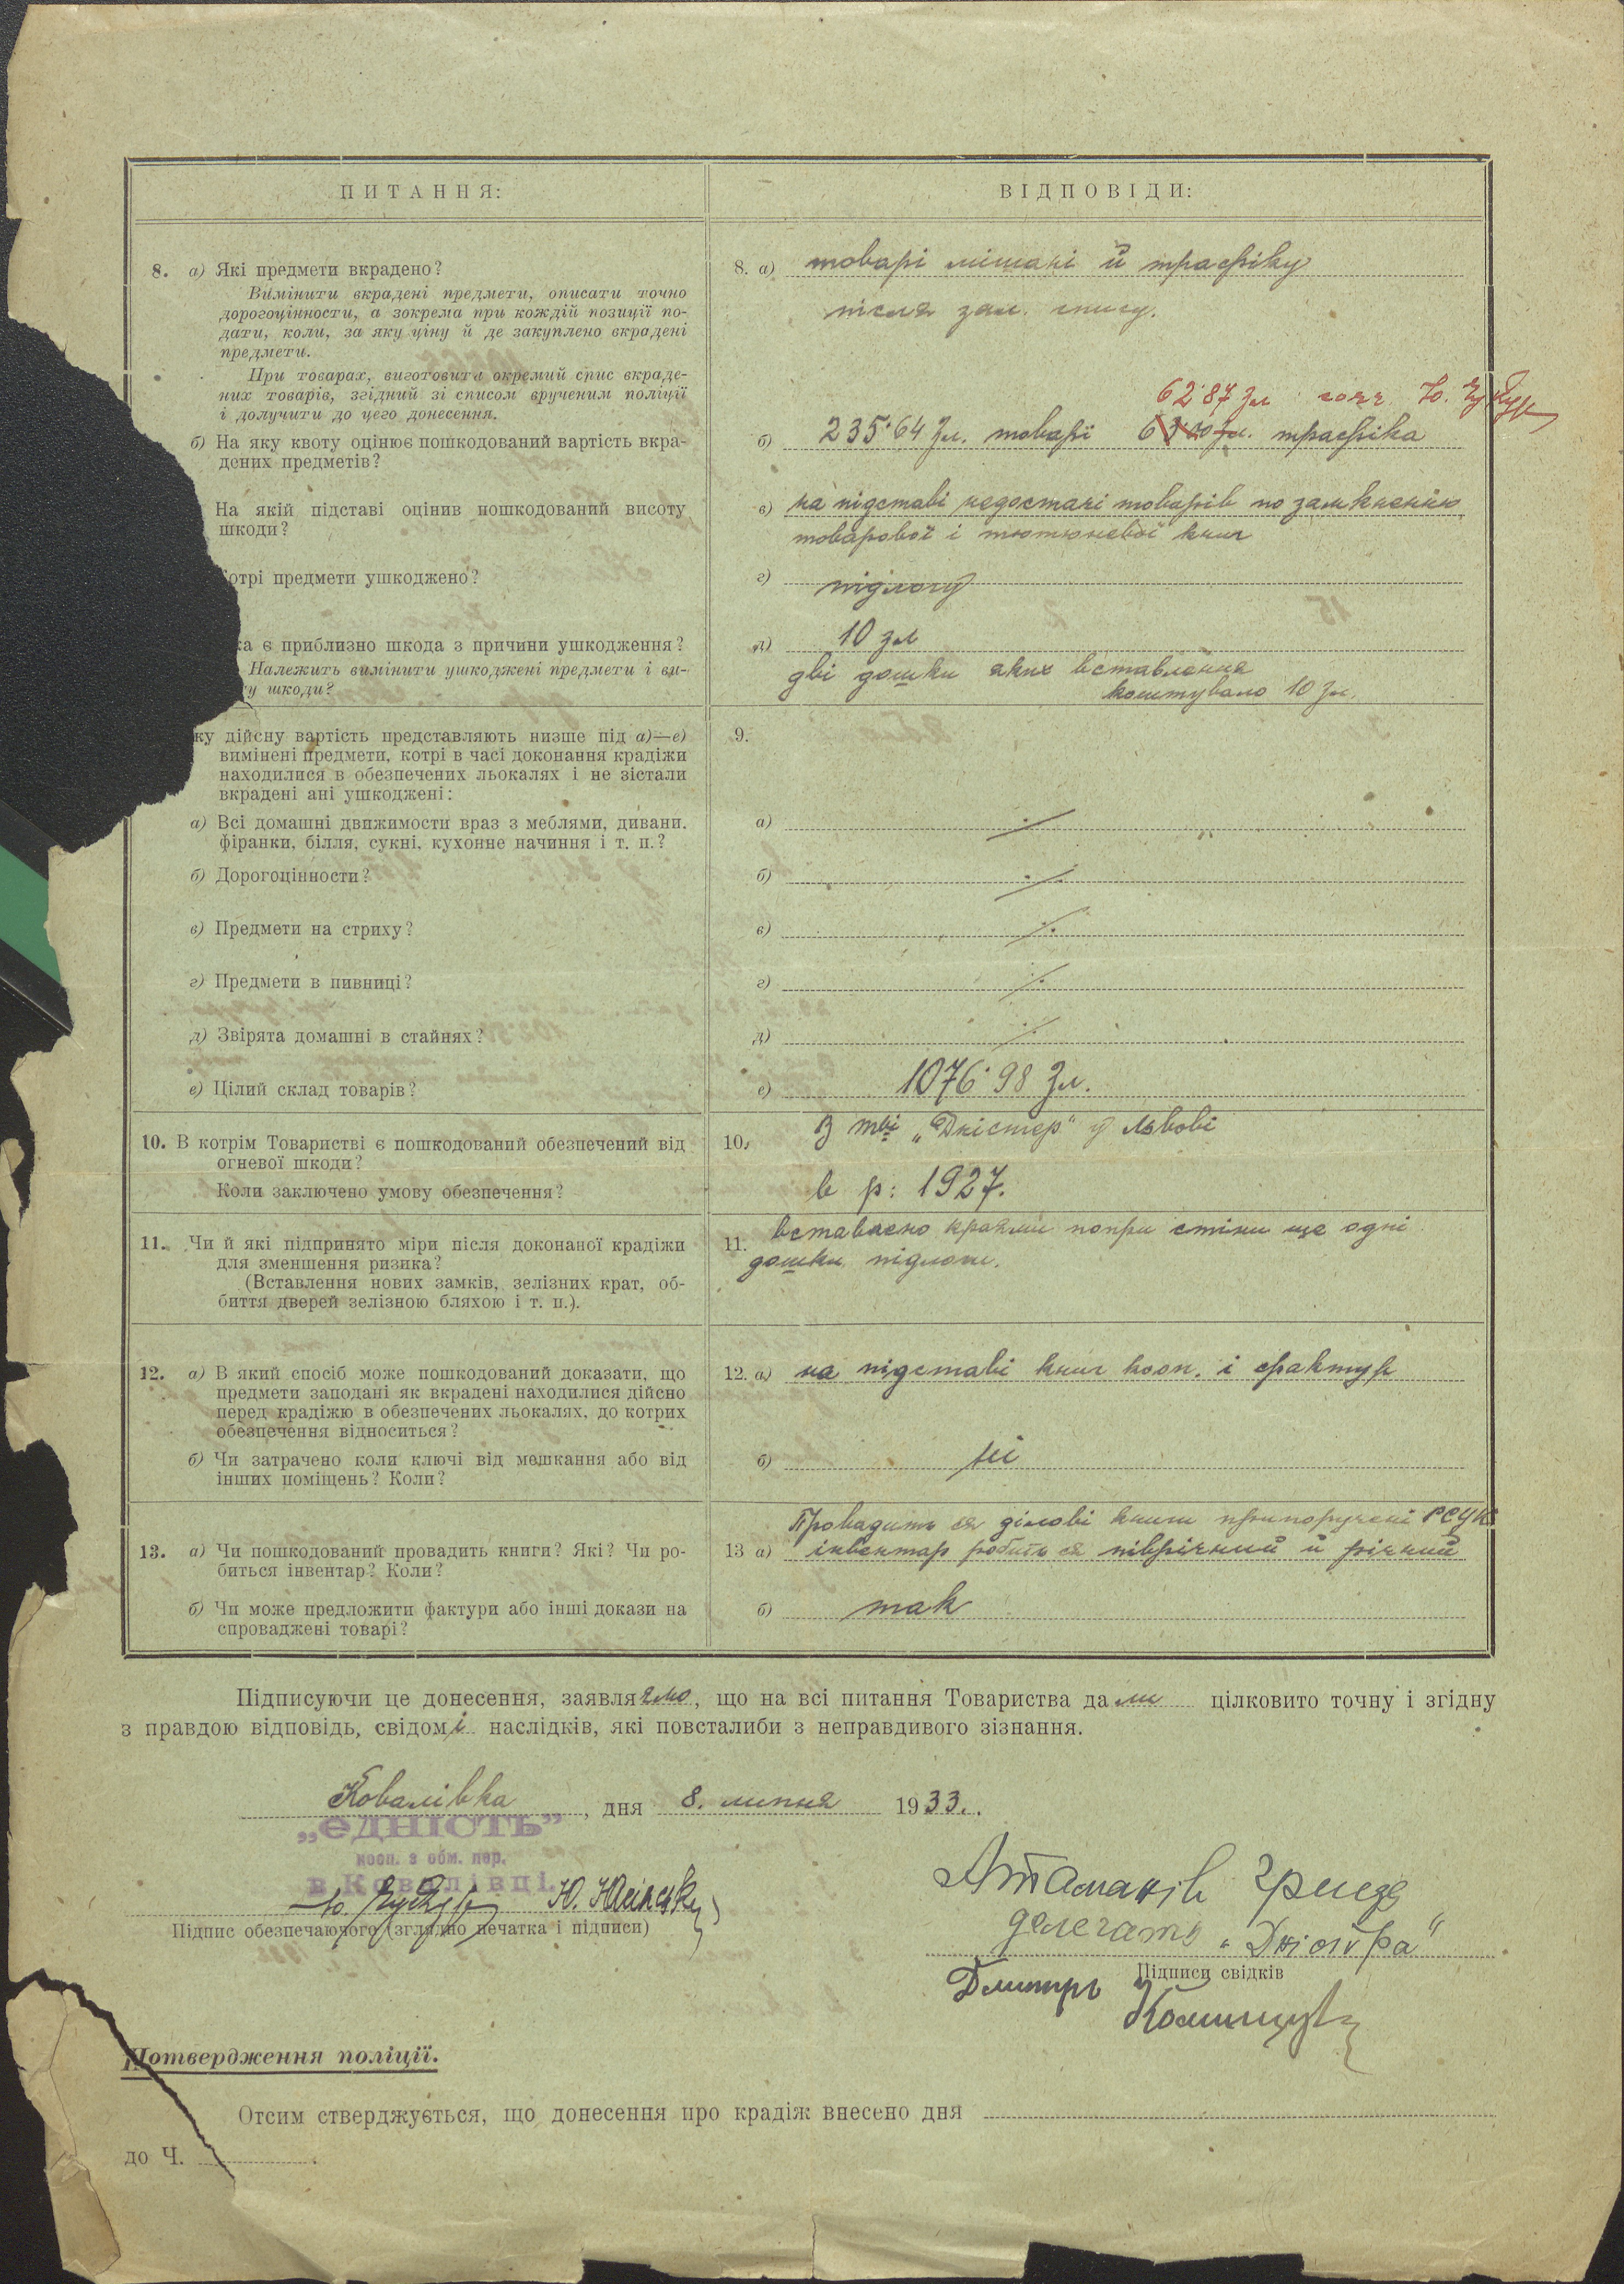 ПИТАННЯ:
ВІДПОВІДИ:
8. а) Які предмети вкрадено?
Вимінити вкрадені предмети, описати точно
дорогоцінности, а зокрема при кождій позиції по-
дати, коли, за яку ціну й де закуплено вкрадені
предмети.
При товарах, виготовити окремий спис вкраде-
них товарів, згідний зі списом врученим поліції
і долучити до цего донесення.
8. а) товарі мішані й трафіку
після зал. спису.
б) На яку квоту оцінює пошкодований вартість вкра-
дених предметів?
62·87 зл
б) 235·64 Зл. товарі трафіка
На якій підставі оцінив пошкодований висоту
шкоди?
в) на підставі недостачі товарів по замкненню
товарової і тютюневої книг
отрі предмети ушкоджено?
г) підлогу
ка є приблизно шкода з причини ушкодження?
Належить вимінити ушкоджені предмети і ви-
у шкоди?
д) 10 зл
дві дошки яких вставлення
коштувало 10 Зл.
ку дійсну вартість представляють низше під а)—е)
вимінені предмети, котрі в часі доконання крадіжи
находилися в обезпечених льокалях і не зістали
вкрадені ані ушкоджені:
9.
а) Всі домашні движимости враз з меблями, дивани.
фіранки, білля, сукні, кухонне начиння і т. п.?
а) ·/.
б) Дорогоцінности?
б) ·/.
в) Предмети на стриху?
в) ·/.
г) Предмети в пивниці?
г) ·/.
д) Звірята домашні в стайнях?
д) ·/.
е) Цілий склад товарів?
е) 1076·98 Зл.
10. В котрім Товаристві є пошкодований обезпечений від
огневої шкоди?
Коли заключено умову обезпечення?
10. В тві „Дністер" у Львові
в р: 1927.
11. Чи й які підпринято міри після доконаної крадіжи
для зменшення ризика?
(Вставлення нових замків, зелізних крат, об-
биття дверей зелізною бляхою і т. п.).
11. вставлено краями попри стіни ще одні
дошки підлоги.
12. а) В який спосіб може пошкодований доказати, що
предмети заподані як вкрадені находилися дійсно
перед крадіжю в обезпечених льокалях, до котрих
обезпечення відноситься?
12. а) на підставі книг кооп. і фактур
б) Чи затрачено коли ключі від мешкання або від
інших поміщень? Коли?
б) ні
13. а) Чи пошкодований провадить книги? Які? Чи ро-
биться інвентар? Коли?
Провадить ся ділові книги припоручені РСУК
13 а) інвентар робить ся піврічний й річний
б) Чи може предложити фактури або інші докази на
спроваджені товарі?
б) так
Підписуючи це донесення, заявляємо, що на всі питання Товариства дали цілковито точну і згідну
з правдою відповідь, свідомі наслідків, які повсталиби з неправдивого зізнання.
Ковалівка, дня 8. липня 1933.
„ЄДНІСТЬ"
кооп. з обм. пор.
в Ковалівці.
Підпис обезпечаючого (зглядно печатка і підписи)
Атаманів Грицо
делегат „Дністра"
Підписи свідків
Дмитро
Потвердження поліції.
Отсим стверджується, що донесення про крадіж внесено дня
до Ч.